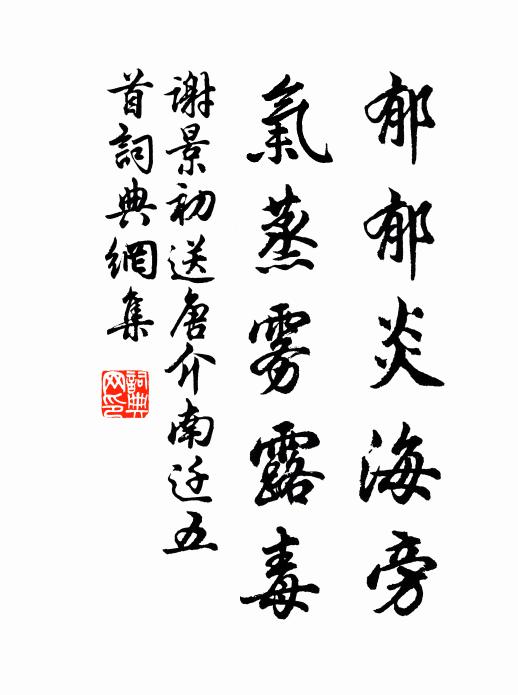 郁郁炎海旁
氣蒸雾露毒
謝景初送唐介南迁五
首詞典網集
詞典
网印